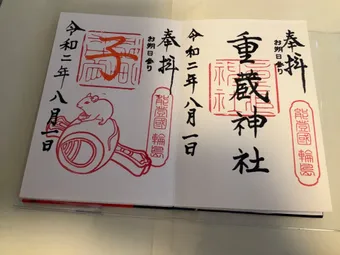 奉拝
お朔日参り
重蔵神社
令和二年八月一日
能登國 輪島
奉拝
お朔日参り
子
令和二年八月一日
能登國 輪島